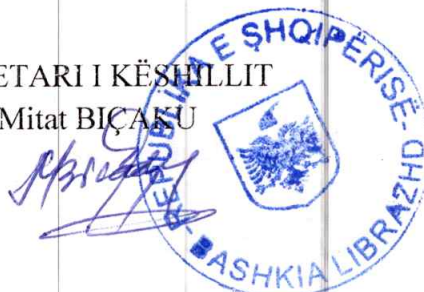 ETARI I KËSHILLIT
Mitat BIÇAKU
REPUBLIKA E SHQIPËRISË-
-BASHKIA LIBRAZHD